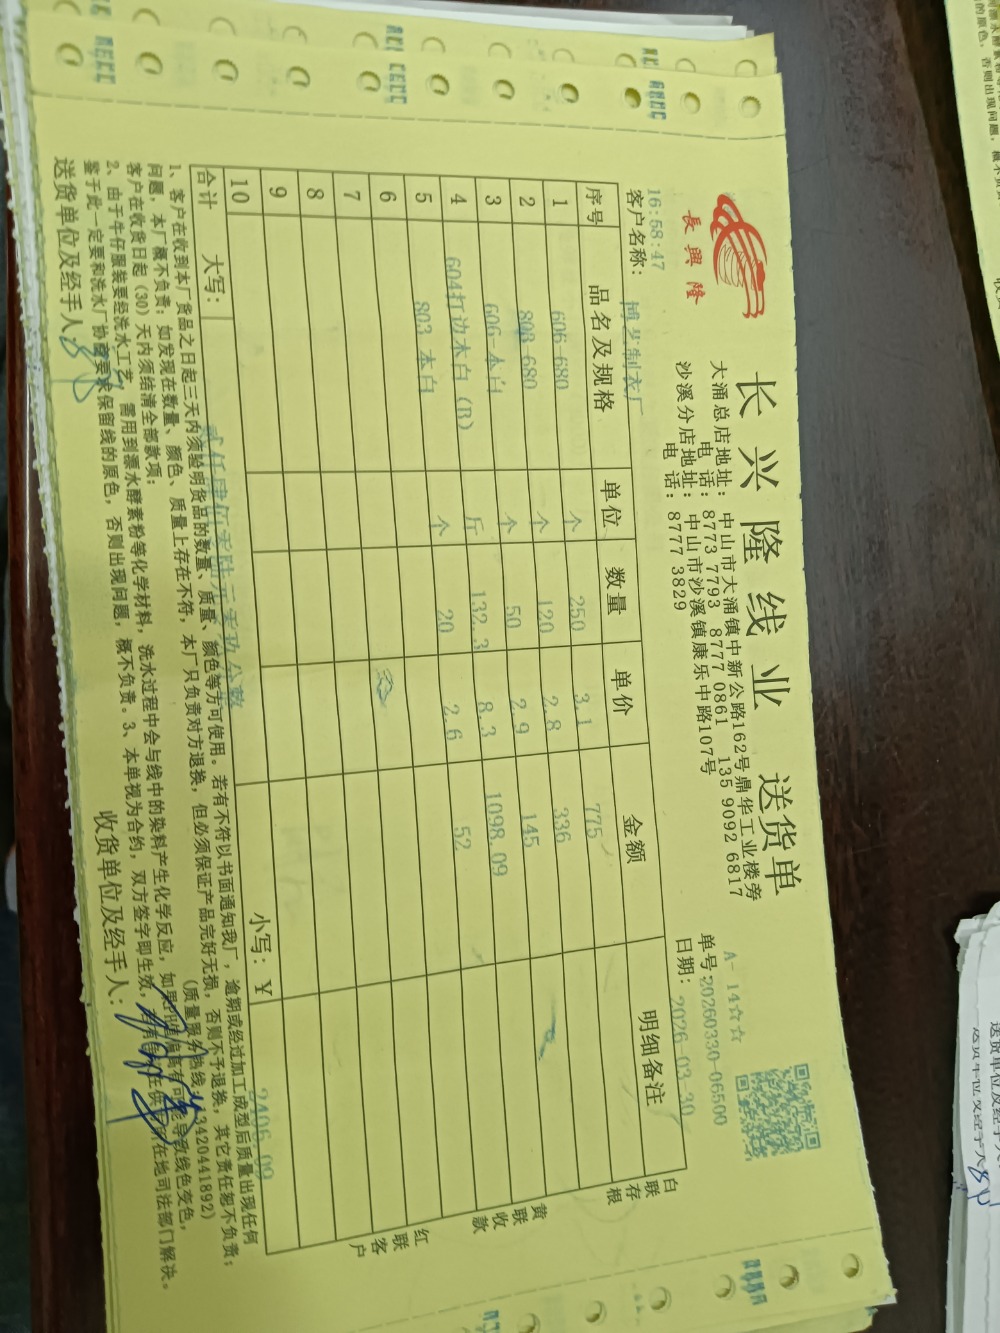 長興隆
长兴隆线业 送货单
大涌总店地址：中山市大涌镇中新公路162号鼎华工业楼旁
电 话：8773 7793 8777 0861 135 9092 6817
沙溪分店地址：中山市沙溪镇康乐中路107号
电 话：8777 3829
A-14☆☆
单号:20260330-06500
16:58:47
客户名称： 博艺制衣厂
日期： 2026-03-30
序号 品名及规格 单位 数量 单价 金额 明细备注
1 606-680 个 250 3.1 775
2 808-680 个 120 2.8 336
3 606-本白 个 50 2.9 145
4 604打边本白（B） 斤 132.3 8.3 1098.09
5 803 本白 个 20 2.6 52
6
7
8
9
10
合计 大写： 贰仟肆佰零陆元零玖分整 小写：￥ 2406.09
白联存根
黄联收款
红联客户
1、客户在收到本厂货品之日起三天内须验明货品的数量、质量、颜色等方可使用。若有不符以书面通知我厂，逾期或经过加工成型后质量出现任何
问题，本厂概不负责；如发现在数量、颜色、质量上存在不符，本厂只负责对方退换，但必须保证产品完好无损，否则不予退换，其它责任恕不负责；
客户在收货日起（30）天内须结清全部款项； （质量服务热线：13420441892）
2、由于牛仔服装要经洗水工艺，需用到漂水酵素粉等化学材料，洗水过程中会与线中的染料产生化学反应，如果PH值偏高有可能导致线色变色，
鉴于此一定要和洗水厂协商要求保留线的原色，否则出现问题，概不负责。3、本单视为合约，双方签字即生效，若有争议在供方所在地司法部门解决。
送货单位及经手人： 收货单位及经手人：